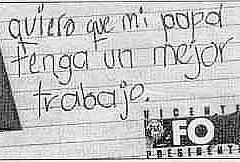 quiero que mi papá
tenga un mejor
trabajo.
VICENTE
FO
PRESIDENTE